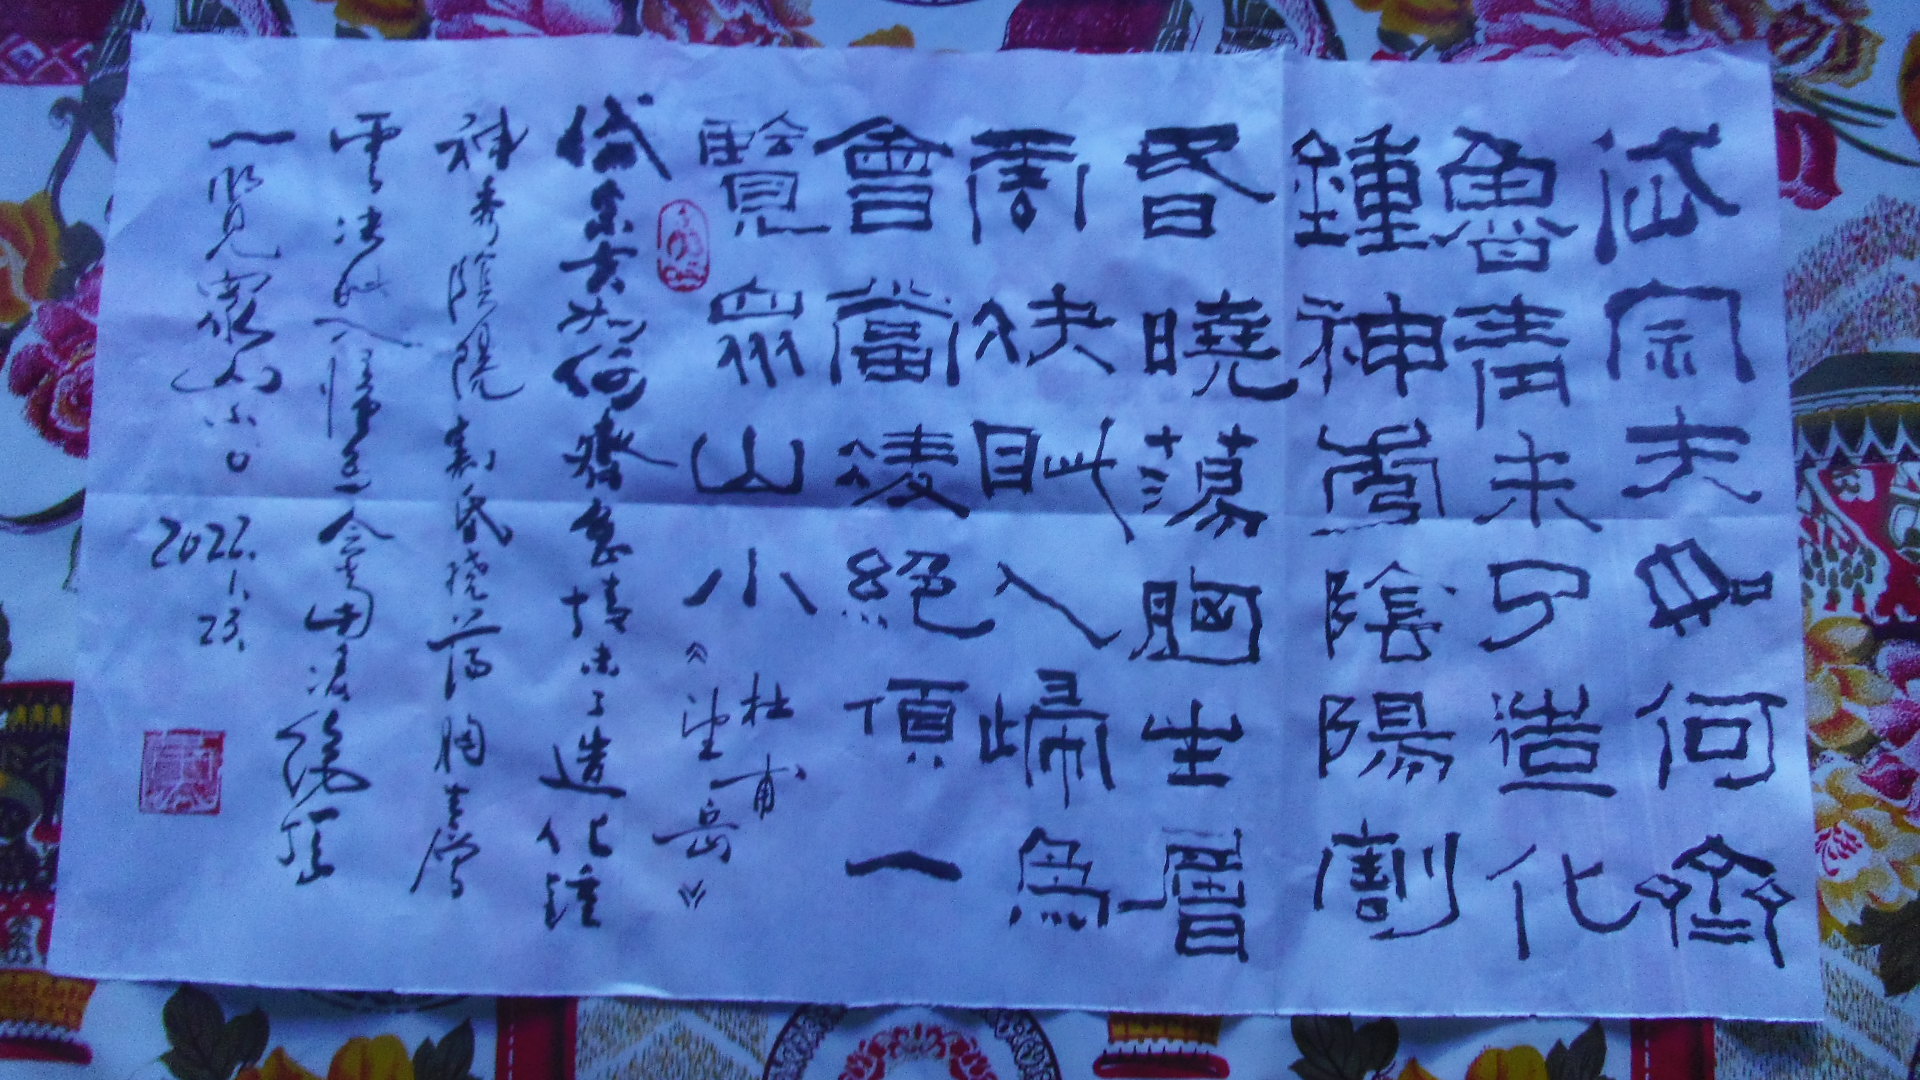 岱宗夫如何齊
魯青未了造化
鍾神秀陰陽割
昏曉蕩胸生層
雲決眥入歸鳥
會當凌絕頂一
覽眾山小
杜甫
《望岳》
岱宗夫如何齊魯青未了造化鍾
神秀陰陽割昏曉蕩胸生層
雲決眥入歸鳥會當凌絕頂
一覽眾山小
2022.
1.
23.